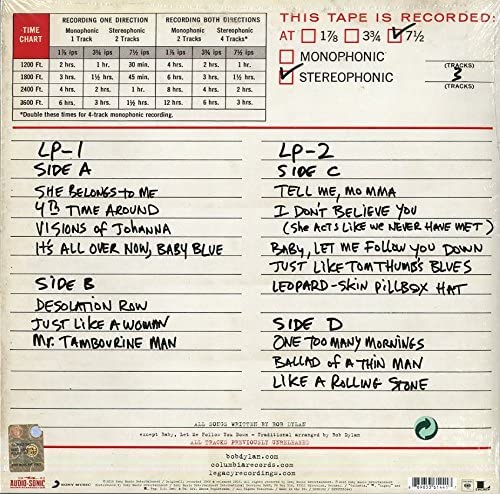 TIME CHART
RECORDING ONE DIRECTION
RECORDING BOTH DIRECTIONS
Monophonic 1 Track
Stereophonic 2 Tracks
Monophonic 2 Tracks
Stereophonic 4 Tracks*
1⅞ ips 3¾ ips 7½ ips 1⅞ ips 3¾ ips 7½ ips
1200 Ft. 2 hrs. 1 hr. 30 min. 4 hrs. 2 hrs. 1 hr.
1800 Ft. 3 hrs. 1½ hrs. 45 min. 6 hrs. 3 hrs. 1½ hrs.
2400 Ft. 4 hrs. 2 hrs. 1 hr. 8 hrs. 4 hrs. 2 hrs.
3600 Ft. 6 hrs. 3 hrs. 1½ hrs. 12 hrs. 6 hrs. 3 hrs.
*Double these times for 4-track monophonic recording.
THIS TAPE IS RECORDED:
AT 1⅞ 3¾ 7½
MONOPHONIC
(TRACKS)
STEREOPHONIC 3
(TRACKS)
LP-1
SIDE A
SHE BELONGS TO ME
4TH TIME AROUND
VISIONS OF JOHANNA
IT'S ALL OVER NOW, BABY BLUE
SIDE B
DESOLATION ROW
JUST LIKE A WOMAN
MR. TAMBOURINE MAN
LP-2
SIDE C
TELL ME, MOMMA
I DON'T BELIEVE YOU
(SHE ACTS LIKE WE NEVER HAVE MET)
BABY, LET ME FOLLOW YOU DOWN
JUST LIKE TOM THUMB'S BLUES
LEOPARD-SKIN PILLBOX HAT
SIDE D
ONE TOO MANY MORNINGS
BALLAD OF A THIN MAN
LIKE A ROLLING STONE
ALL SONGS WRITTEN BY BOB DYLAN
except Baby, Let Me Follow You Down – Traditional arranged by Bob Dylan
ALL TRACKS PREVIOUSLY UNRELEASED
bobdylan.com
columbiarecords.com
legacyrecordings.com
AUDIO-SONIC
SONY MUSIC